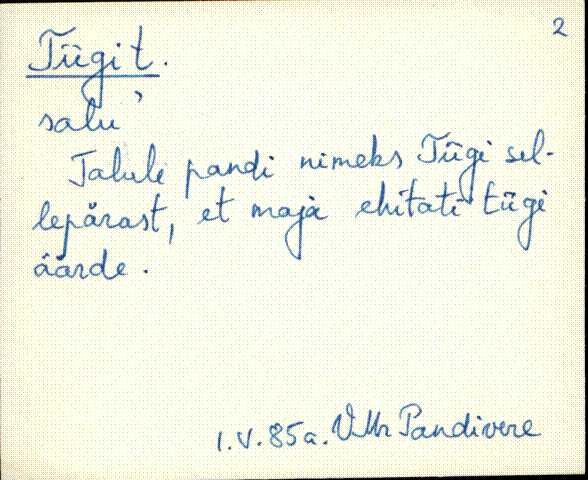 2
Tiigi t.
talu
Talule pandi nimeks Tiigi sel-
lepärast, et maja ehitati tiigi
äärde.
1.V.85a. VMr Pandivere